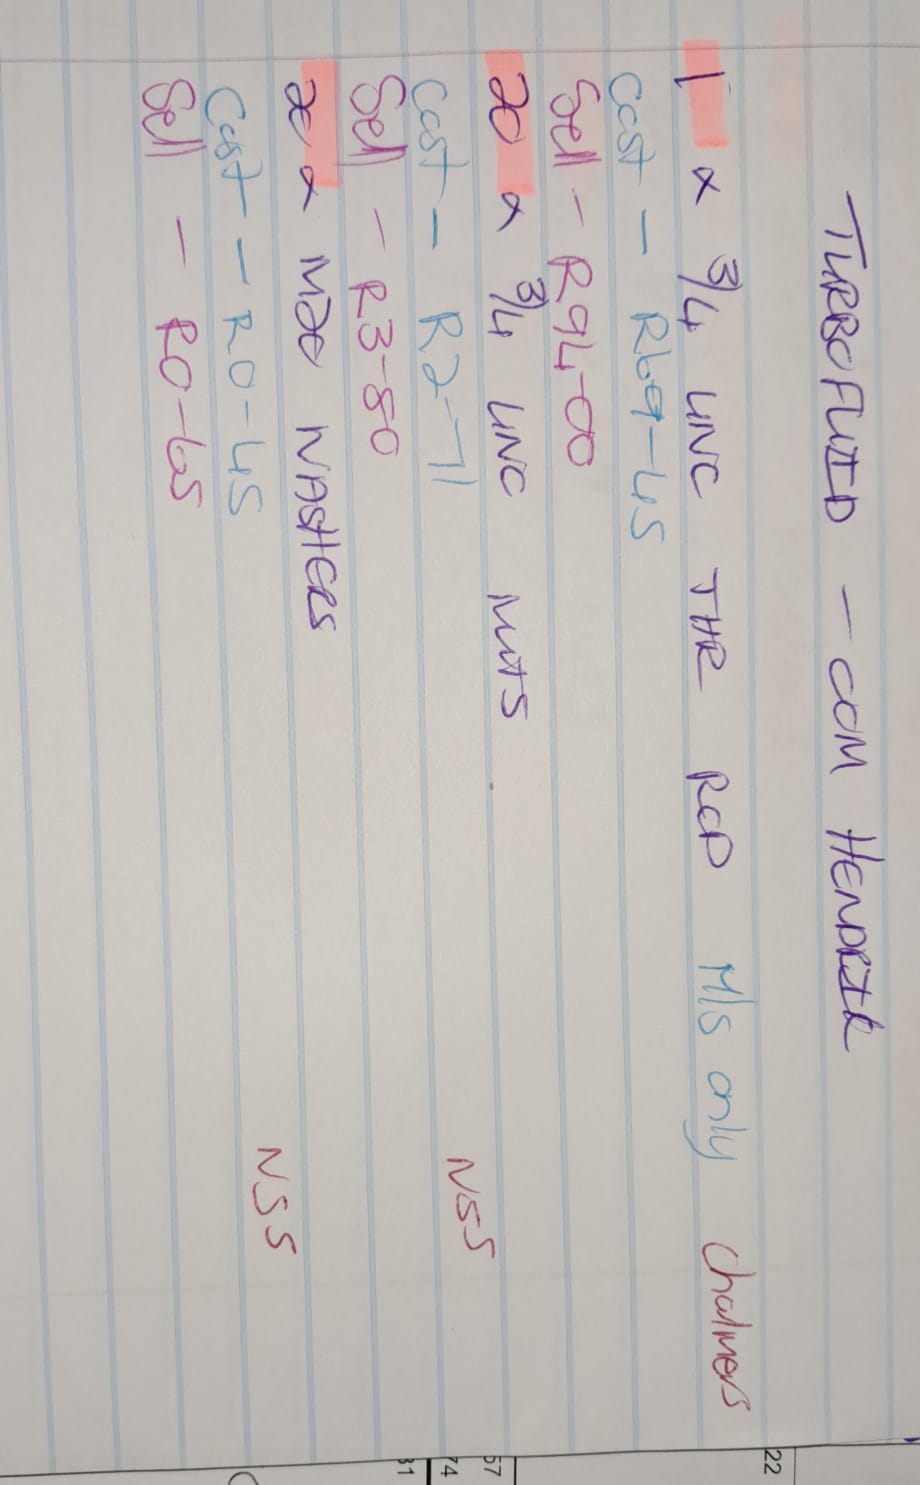 TURBOFLUID - COM HENDRIK
1 x 3/4 UNC THR ROD M/s only Chalmers
Cost - R69-45
Sell - R94-00
20 x 3/4 UNC NUTS
Cost - R2-71 NSS
Sell - R3-80
20 x M20 WASHERS
Cost - R0-45 NSS
Sell - R0-65
22
57
74
31